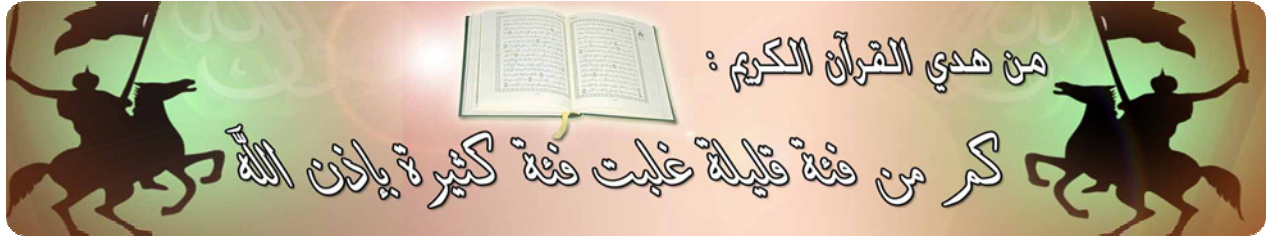 من هدي القرآن الكريم :
كم من فئة قليلة غلبت فئة كثيرة بإذن الله